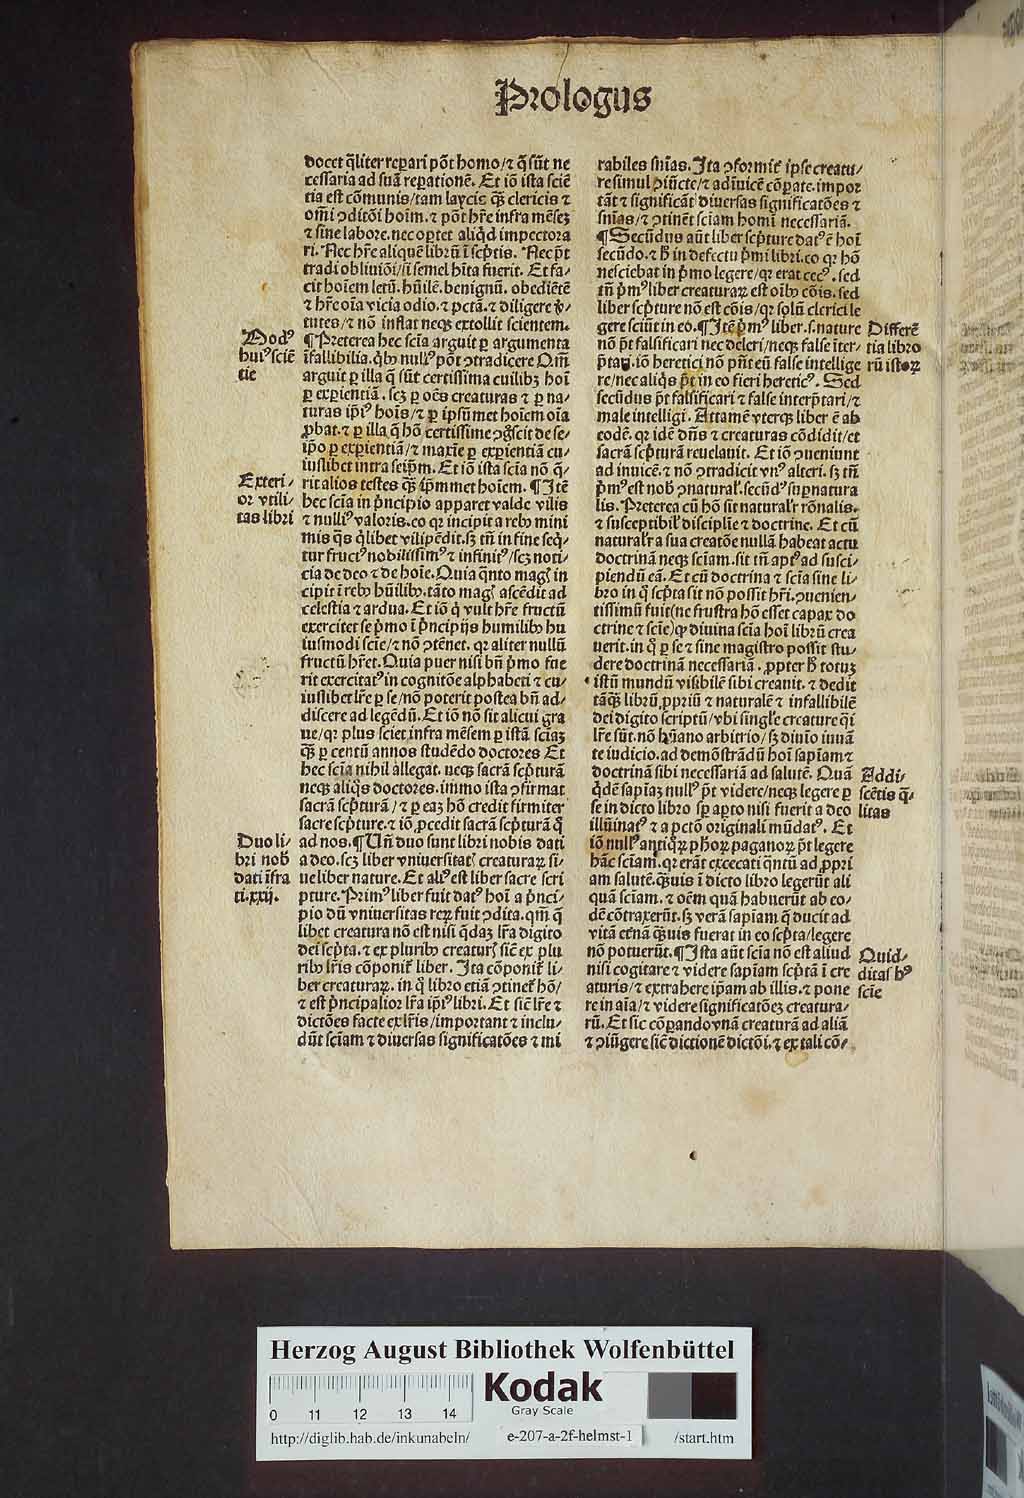 Prologus
docet q̃liter reꝑari põt homo/⁊ q̃ sũt ne
cessaria ad suã reꝑationẽ. Et iõ ista sciẽ
tia est cõmunis/tam laycis q̃ȝ clericis ⁊
om̃i ꝯditõi hoĩm. ⁊ põt hr̃e infra mẽseȝ
⁊ sine labore. nec oꝑtet aliq̃d impectora
ri. Nec hr̃e aliquẽ librũ ĩ scp̃tis. Nec p̃t
tradi obliuiõi/si semel hĩta fuerit. Et fa-
cit hoĩem letũ. hũilẽ. benignũ. obediẽtẽ
⁊ hr̃e oĩa vicia odio. ⁊ pctã. ⁊ diligere v̾-
tutes/⁊ nõ inflat neqȝ extollit scientem.
¶Preterea hec scĩa arguit ꝑ argumenta
ĩfallibilia. q̃bꝫ nullꝰ põt ꝯtradicere Qm̃
arguit ꝑ illa q̃ sũt certissima cuilibȝ hoĩ
ꝑ exꝑientiã. scȝ ꝑ oẽs creaturas ⁊ ꝑ na-
turas ip̃iꝰ hoĩs/⁊ ꝑ ip̃sũmet hoĩem oĩa
ꝓbat. ⁊ ꝑ illa q̃ hõ certissime ꝯgͦscit de se-
ip̃o ꝑ exꝑientiã/⁊ maxĩe ꝑ exꝑientiã cu-
iuslibet intra seip̃m. Et iõ ista scĩa nõ q̃-
rit alios testes q̃ȝ ip̃mmet hoĩem. ¶Itẽ
hec scĩa in p̃ncipio apparet valde vilis
⁊ nulliꝰ valoris. eo qꝛ incipit a rebꝫ mini
mis q̃s q̃libet vilipẽdit. sȝ tñ in fine seq̃-
tur fructꝰ nobilissimꝰ ⁊ infinitꝰ/scȝ noti-
cia de deo ⁊ de hoĩe. Quia q̃nto magꝭ in
cipit ĩ rebꝫ hũilibꝫ. tãto magꝭ ascẽdit ad
celestia ⁊ ardua. Et iõ q̃ vult hr̃e fructũ
exercitet se p̃mo ĩ p̃ncipijs humilibꝫ hu
iusmodi scĩe/⁊ nõ ꝯtẽnet. qꝛ aliter nullũ
fructũ hr̃et. Quia puer nisi bñ p̃mo fue
rit exercitatꝰ in cognitõe alphabeti ⁊ cu-
iuslibet lr̃e ꝑ se/nõ poterit postea bñ ad-
discere ad legẽdũ. Et iõ nõ sit alicui gra
ue/qꝛ plus sciet infra mẽsem ꝑ istã sciãȝ
q̃ȝ ꝑ centũ annos studẽdo doctores Et
hec scĩa nihil allegat. neqȝ sacrã scp̃turã
neqȝ aliq̃s doctores. immo ista ꝯfirmat
sacrã scp̃turã/⁊ ꝑ eaȝ hõ credit firmiter
sacre scp̃ture. ⁊ iõ ꝓcedit sacrã scp̃turã q̃
ad nos. ¶Uñ duo sunt libri nobis dati
a deo. scȝ liber vniuersitatꝭ creaturaꝝ si-
ue liber nature. Et aliꝰ est liber sacre scri
pture. Primꝰ liber fuit datꝰ hoĩ a p̃nci-
pio dũ vniuersitas reꝝ fuit ꝯdita. qm̃ q̃
libet creatura nõ est nisi q̃daȝ lr̃a digito
dei scp̃ta. ⁊ ex pluribꝫ creaturꝭ sicẽ ex plu
ribꝫ lr̃is cõponit̃ liber. Ita cõponit̃ li-
ber creaturaꝝ. in q̃ libro etiã ꝯtinet̃ hõ/
⁊ est p̃ncipalior lr̃a ip̃iꝰ libri. Et sicẽ lr̃e ⁊
dictões facte ex lr̃is/important ⁊ inclu-
dũt sciam ⁊ diuersas significatões ⁊ mi
Modꝰ
huiꝰ sciẽ
tie
Exteri-
or vtili
tas libri
Duo li-
bri nob̃
dati ĩfra
ti. xxij.
rabiles sñias. Ita ꝯformit̃ ipse creatu-
re simul ꝯiũcte/⁊ adĩuicẽ cõꝑate. impor
tãt ⁊ significãt diuersas significatões ⁊
sñias/⁊ ꝯtinẽt sciam homĩ necessariã.
¶Secũdus aũt liber scp̃ture datꝰ ẽ hoĩ
secũdo. ⁊ h̃ in defectu p̃mi libri. eo qꝛ hõ
nesciebat in p̃mo legere/qꝛ erat cecꝰ. sed
tñ p̃mꝰ liber creaturaꝝ est oĩbꝫ cõis. sed
liber scp̃ture nõ est cõis/qꝛ solũ clerici le
gere sciũt in eo. ¶Itẽ p̃mꝰ liber. s. nature
nõ p̃t falsificari nec deleri/neqȝ false ĩter-
p̃tari. iõ heretici nõ pñt eũ false intellige
re/nec aliq̃s p̃t in eo fieri hereticꝰ. Sed
secũdus p̃t falsificari ⁊ false interp̃tari/⁊
male intelligi. Attamẽ vterqȝ liber ẽ ab
eodẽ. qꝛ idẽ dñs ⁊ creaturas cõdidit/et
sacrã scp̃turã reuelauit. Et iõ ꝯueniunt
ad inuicẽ. ⁊ nõ ꝯtradicit vnꝰ alteri. sȝ tñ
p̃mꝰ est nob̃ ꝯnatural̃. secũdꝰ suꝑnatura
lis. Preterea cũ hõ sit natural̃r rõnalis.
⁊ susceptibil̃ discipliẽ ⁊ doctrine. Et cũ
natural̃r a sua creatõe nullã habeat actu
doctrinã neqȝ sciam. sit tñ aptꝰ ad susci-
piendũ eã. Et cũ doctrina ⁊ scĩa sine li-
bro in q̃ scp̃ta sit nõ possit hr̃i. ꝯuenien-
tissimũ fuit(ne frustra hõ esset capax do
ctrine ⁊ scĩe)qꝙ diuina scĩa hoĩ librũ crea
uerit. in q̃ ꝑ se ⁊ sine magistro possit stu-
dere doctrinã necessariã. ꝓpter h̃ totuȝ
istũ mundũ visibilẽ sibi creauit. ⁊ dedit
tãq̃ȝ librũ ꝓpriũ ⁊ naturalẽ ⁊ infallibilẽ
dei digito scriptũ/vbi singl̃e creature q̃i
lr̃e sũt. nõ hũano arbitrio/sȝ diuĩo iuuã
te iudicio. ad demõstrãdũ hoĩ sapĩam ⁊
doctrinã sibi necessariã ad salutẽ. Quã
q̃dẽ sapĩaȝ nullꝰ p̃t videre/neqȝ legere ꝑ
se in dicto libro sꝑ aꝑto nisi fuerit a deo
illũinatꝰ ⁊ a pctõ originali mũdatꝰ. Et
iõ nullꝰ antiq̃ꝝ ph̃oꝝ paganoꝝ p̃t legere
hãc sciam. qꝛ erãt excecati q̃ntũ ad ꝓpri
am salutẽ. q̃ȝuis ĩ dicto libro legerũt ali
quã sciam. ⁊ oẽm quã habuerũt ab eo-
dẽ cõtraxerũt. sȝ verã sapĩam q̃ ducit ad
vitã etñã q̃ȝuis fuerat in eo scp̃ta/legere
nõ potuerũt. ¶Ista aũt scĩa nõ est aliud
nisi cogitare ⁊ videre sapĩam scp̃tã ĩ cre
aturis/⁊ extrahere ip̃am ab illis. ⁊ pone
re in aĩa/⁊ videre significatõeȝ creatura-
rũ. Et sic cõꝑando vnã creaturã ad aliã
⁊ ꝯiũgere sicẽ dictionẽ dictõi. ⁊ ex tali cõ-
Differẽ
tia libro
rũ istoꝝ
Addi-
scẽtis q̃-
litas
Quid-
ditas hꝰ
scĩe
Herzog August Bibliothek Wolfenbüttel
0 11 12 13 14
Kodak
Gray Scale
http://diglib.hab.de/inkunabeln/ e-207-a-2f-helmst-1 /start.htm